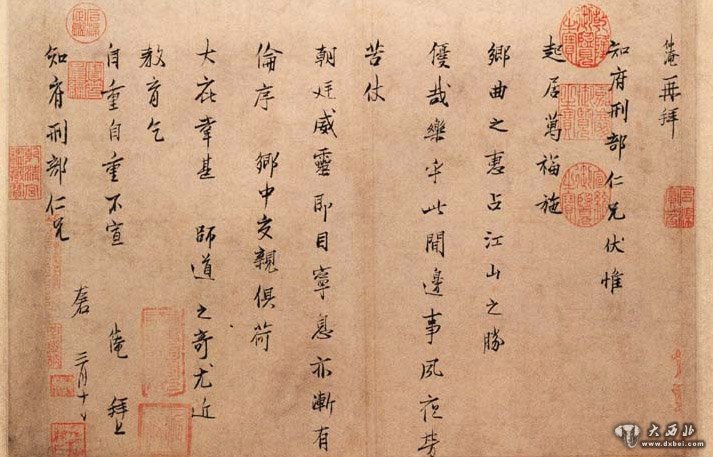 仲淹再拜
知府刑部仁兄伏惟
起居萬福施
鄉曲之惠占江山之勝
優哉樂乎此間邊事夙夜勞
苦仗
朝廷威靈即目寧息亦漸有
倫序 鄉中交親俱荷
大庇幸甚 師道之奇尤近
教育乞
自重自重不宣 仲淹 拜上
知府刑部仁兄 左右 三月十日
大西北
www.dxbei.com